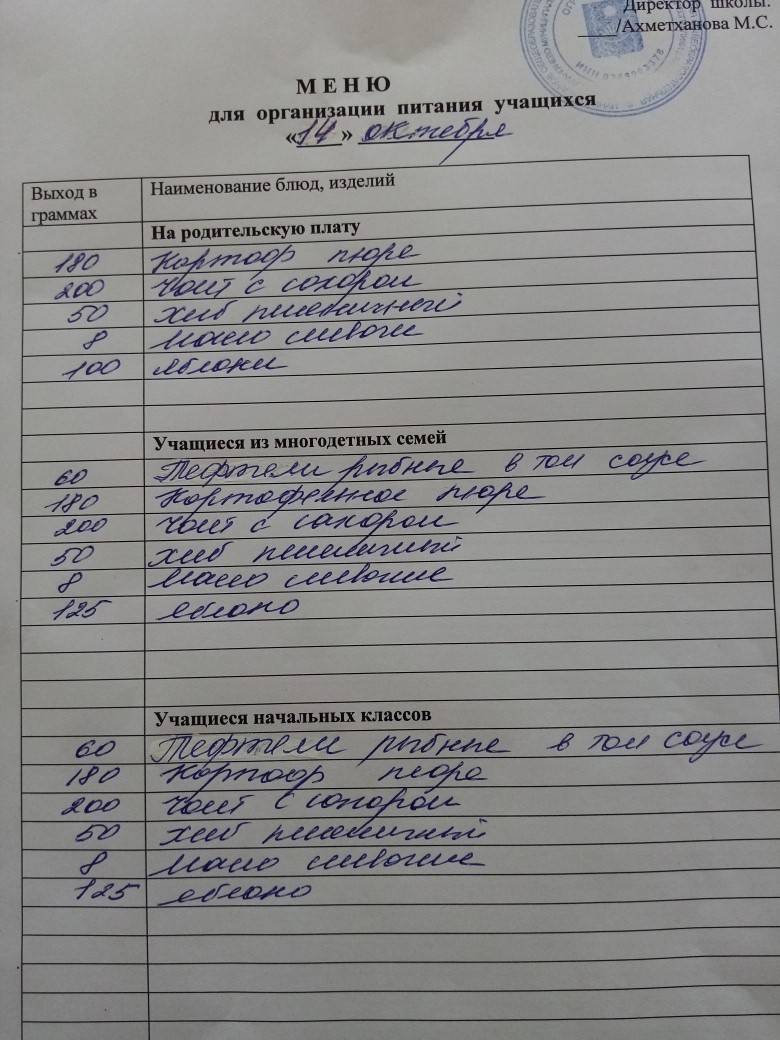 Директор школы:
/Ахметханова М.С.
МЕНЮ
для организации питания учащихся
«14» октября
Выход в граммах Наименование блюд, изделий
На родительскую плату
180 Картоф пюре
200 Чай с сахаром
50 хлеб пшеничный
8 масло сливочн
100 яблоки
Учащиеся из многодетных семей
60 Тефтели рыбные в том соусе
180 Картофельное пюре
200 Чай с сахаром
50 хлеб пшеничный
8 масло сливочное
125 яблоко
Учащиеся начальных классов
60 Тефтели рыбные в том соусе
180 Картоф пюре
200 Чай с сахаром
50 хлеб пшеничный
8 масло сливочное
125 яблоко